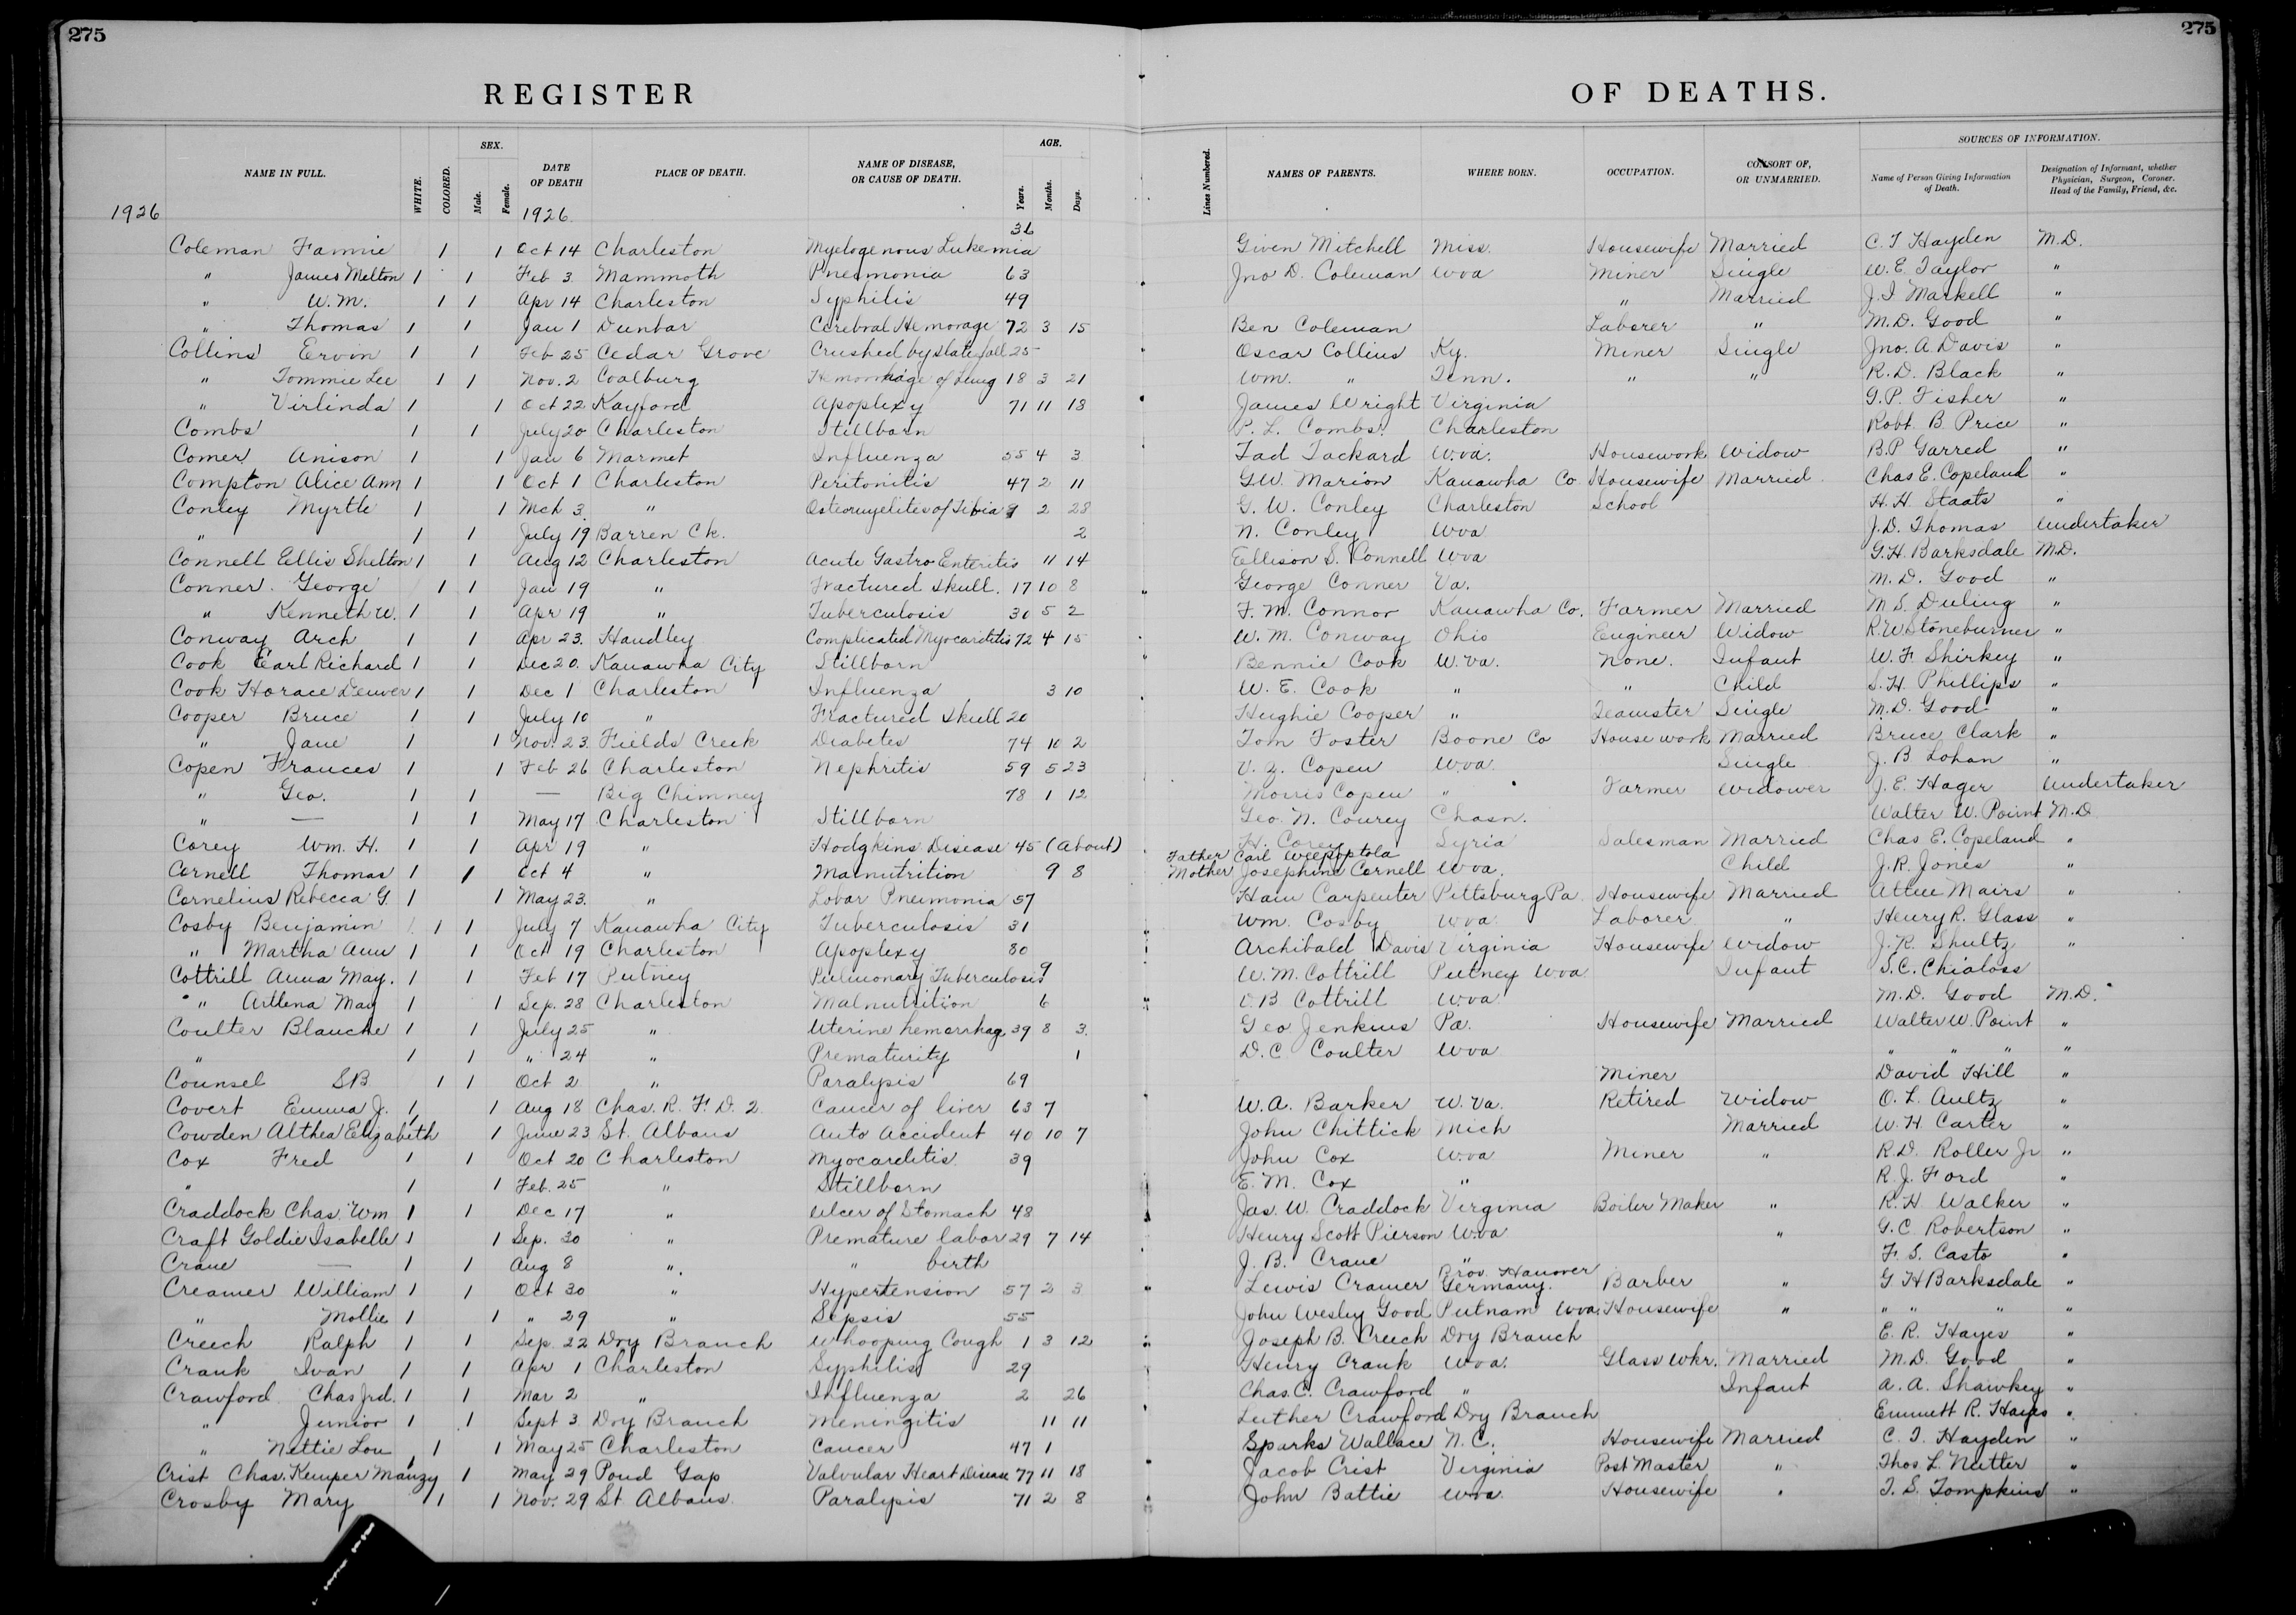 275 275
REGISTER OF DEATHS.
NAME IN FULL. WHITE. COLORED. SEX. Male. Female. DATE OF DEATH PLACE OF DEATH. NAME OF DISEASE, OR CAUSE OF DEATH. AGE. Years. Months. Days. Lines Numbered. NAMES OF PARENTS. WHERE BORN. OCCUPATION. CONSORT OF, OR UNMARRIED. SOURCES OF INFORMATION. Name of Person Giving Information of Death. Designation of Informant, whether Physician, Surgeon, Coroner. Head of the Family, Friend, &c.
1926 1926
Coleman Fannie 1 1 Oct 14 Charleston Myelogenous Lukemia 36 Given Mitchell Miss. Housewife Married C. T Hayden M.D.
" James Melton 1 1 Feb 3 Mammoth Pneumonia 63 Jno D. Coleman Wva Miner Single W. E. Taylor "
" W. M. 1 1 Apr 14 Charleston Syphilis 49 " Married J. I Markell "
" Thomas 1 1 Jan 1 Dunbar Cerebral Hemorage 72 3 15 Ben Coleman Laborer " M. D. Good "
Collins Ervin 1 1 Feb 25 Cedar Grove Crushed by slate fall 25 Oscar Collins Ky. Miner Single Jno. A. Davis "
" Tommie Lee 1 1 Nov. 2 Coalburg Hemorrhage of Lung 18 3 21 Wm. " Tenn. " " R. D. Black "
" Virlinda 1 1 Oct 22 Kayford Apoplexy 71 11 18 James Wright Virginia G. P. Fisher "
Combs 1 1 July 20 Charleston Stillborn P. L. Combs. Charleston Robt. B. Price "
Comer Anison 1 1 Jan 6 Marmet Influenza 55 4 3 Tad Tackard W.va. Housework Widow B.P Garred "
Compton Alice Ann 1 1 Oct 1 Charleston Peritonitis 47 2 11 G.W. Marion Kanawha Co Housewife Married Chas E. Copeland "
Conley Myrtle 1 1 Mch 3. " Osteomyelites of Tibia 9 2 28 G. W. Conley Charleston School H. H. Staats "
" 1 1 July 19 Barren Ck. 2 N. Conley Wva J. D. Thomas Undertaker
Connell Ellis Shelton 1 1 Aug 12 Charleston Acute Gastro Enteritis 11 14 Ellison S. Connell Wva G. H. Barksdale M.D.
Conner. George 1 1 Jan 19 " Fractured Skull. 17 10 8 George Conner Va. M. D. Good "
" Kenneth W. 1 1 Apr 19 " Tuberculosis 30 5 2 F. M. Connor Kanawha Co. Farmer Married M. S. Duling "
Conway Arch 1 1 Apr 23. Handley Complicated Myocarditis 72 4 15 W. M. Conway Ohio Engineer Widow R. W Stoneburner "
Cook Earl Richard 1 1 Dec 20. Kanawha City Stillborn Bennie Cook W.va. None. Infant W. F. Shirkey "
Cook Horace Denver 1 1 Dec 1 Charleston Influenza 3 10 W. E. Cook " " Child S. H. Phillips "
Cooper Bruce 1 1 July 10 " Fractured Skull 20 Hughie Cooper " Teamster Single M. D. Good "
" Jane 1 1 Nov. 23. Fields Creek Diabetes 74 10 2 Tom Foster Boone Co House work Married Bruce Clark "
Copen Frances 1 1 Feb 26 Charleston Nephritis 59 5 23 V. Z. Copen W.va. Single J. B Lohan "
" Geo. 1 1 — Big Chimney 78 1 12 Morris Copen " Farmer Widower J. E. Hager Undertaker
" — 1 1 May 17 Charleston Stillborn Geo. N. Courey Chasn. Walter W. Point M.D.
Corey Wm. H. 1 1 Apr 19 " Hodgkins Disease 45 (About) H. Corey Syria Salesman Married Chas E. Copeland "
Father Carl
Cornell Thomas 1 1 Oct 4 " Malnutrition 9 8 Mother Josephine Cornell Wva. Child J. R. Jones "
Cornelius Rebecca G. 1 1 May 23. " Lobar Pneumonia 57 Ham Carpenter Pittsburg Pa. Housewife Married Mairs "
Cosby Benjamin 1 1 July 7 Kanawha City Tuberculosis 31 Wm. Cosby Wva. Laborer " Henry R. Glass "
" Martha Ann 1 1 Oct 19 Charleston Apoplexy 80 Archibald Davis Virginia Housewife Widow J. R. Shultz "
Cottrill Anna May. 1 1 Feb 17 Putney Pulmonary Tuberculosis 9 W. M. Cottrill Putney Wva. Infant S. C. Chialoss
" Arttena May 1 1 Sep. 28 Charleston Malnutrition 6 Cottrill W.va. M. D. Good M.D.
Coulter Blanche 1 1 July 25 " Uterine hemorrhag 39 8 3. Geo Jenkins Pa. Housewife Married Walter W. Point "
" 1 1 " 24 " Prematurity 1 D. C. Coulter Wva " " " "
Counsel SB 1 1 Oct 2 " Paralysis 69 Miner David Hill "
Covert Emma J. 1 1 Aug 18 Chas. R. F. D. 2 Cancer of liver 63 7 W. A. Barker W. Va. Retired Widow O. L. Aultz "
Cowden Althea Elizabeth 1 1 June 23 St. Albans Auto Accident 40 10 7 John Chittick Mich Married W. H. Carter "
Cox Fred 1 1 Oct 20 Charleston Myocarditis 39 John Cox W.va Miner " R. D. Roller Jr "
" 1 1 Feb. 25 " Stillborn E. M. Cox " R. J. Ford "
Craddock Chas. Wm 1 1 Dec 17 " Ulcer of Stomach 48 Jas. W. Craddock Virginia Boiler Maker " R. H. Walker "
Craft Goldie Isabelle 1 1 Sep. 30 " Premature labor 29 7 14 Henry Scott Pierson W.va " G. C Robertson "
Crane — 1 1 Aug 8 " " birth J. B. Crane " F. S. Casto "
Prov. Hanover
Creamer William 1 1 Oct 30 " Hypertension 57 2 3 Lewis Cramer Germany. Barber " G H Barksdale "
" Mollie 1 1 " 29 " Sepsis 55 John Wesley Good Putnam Wva. Housewife " " " " "
Creech Ralph 1 1 Sep. 22 Dry Branch Whooping Cough 1 3 12 Joseph B. Creech Dry Branch E. R. Hayes "
Crank Ivan 1 1 Apr 1 Charleston Syphilis 29 Henry Crank Wva. Glass Wkr. Married M. D. Good "
Crawford Chas Jrd. 1 1 Mar 2 " Influenza 2 26 Chas. C. Crawford " Infant A. A. Shawkey "
" Junior 1 1 Sept 3 Dry Branch Meningitis 11 11 Luther Crawford Dry Branch Emmett R. Hayes "
" Nettie Lou 1 1 May 25 Charleston Cancer 47 1 Sparks Wallace N. C. Housewife Married C. T. Hayden "
Crist Chas. Kemper Manzy 1 1 May 29 Pond Gap Valvular Heart Disease 77 11 18 Jacob Crist Virginia Post Master " Thos L. Nutter "
Crosby Mary 1 1 Nov. 29 St Albans Paralysis 71 2 8 John Battie Wva. Housewife " T. S. Tompkins "